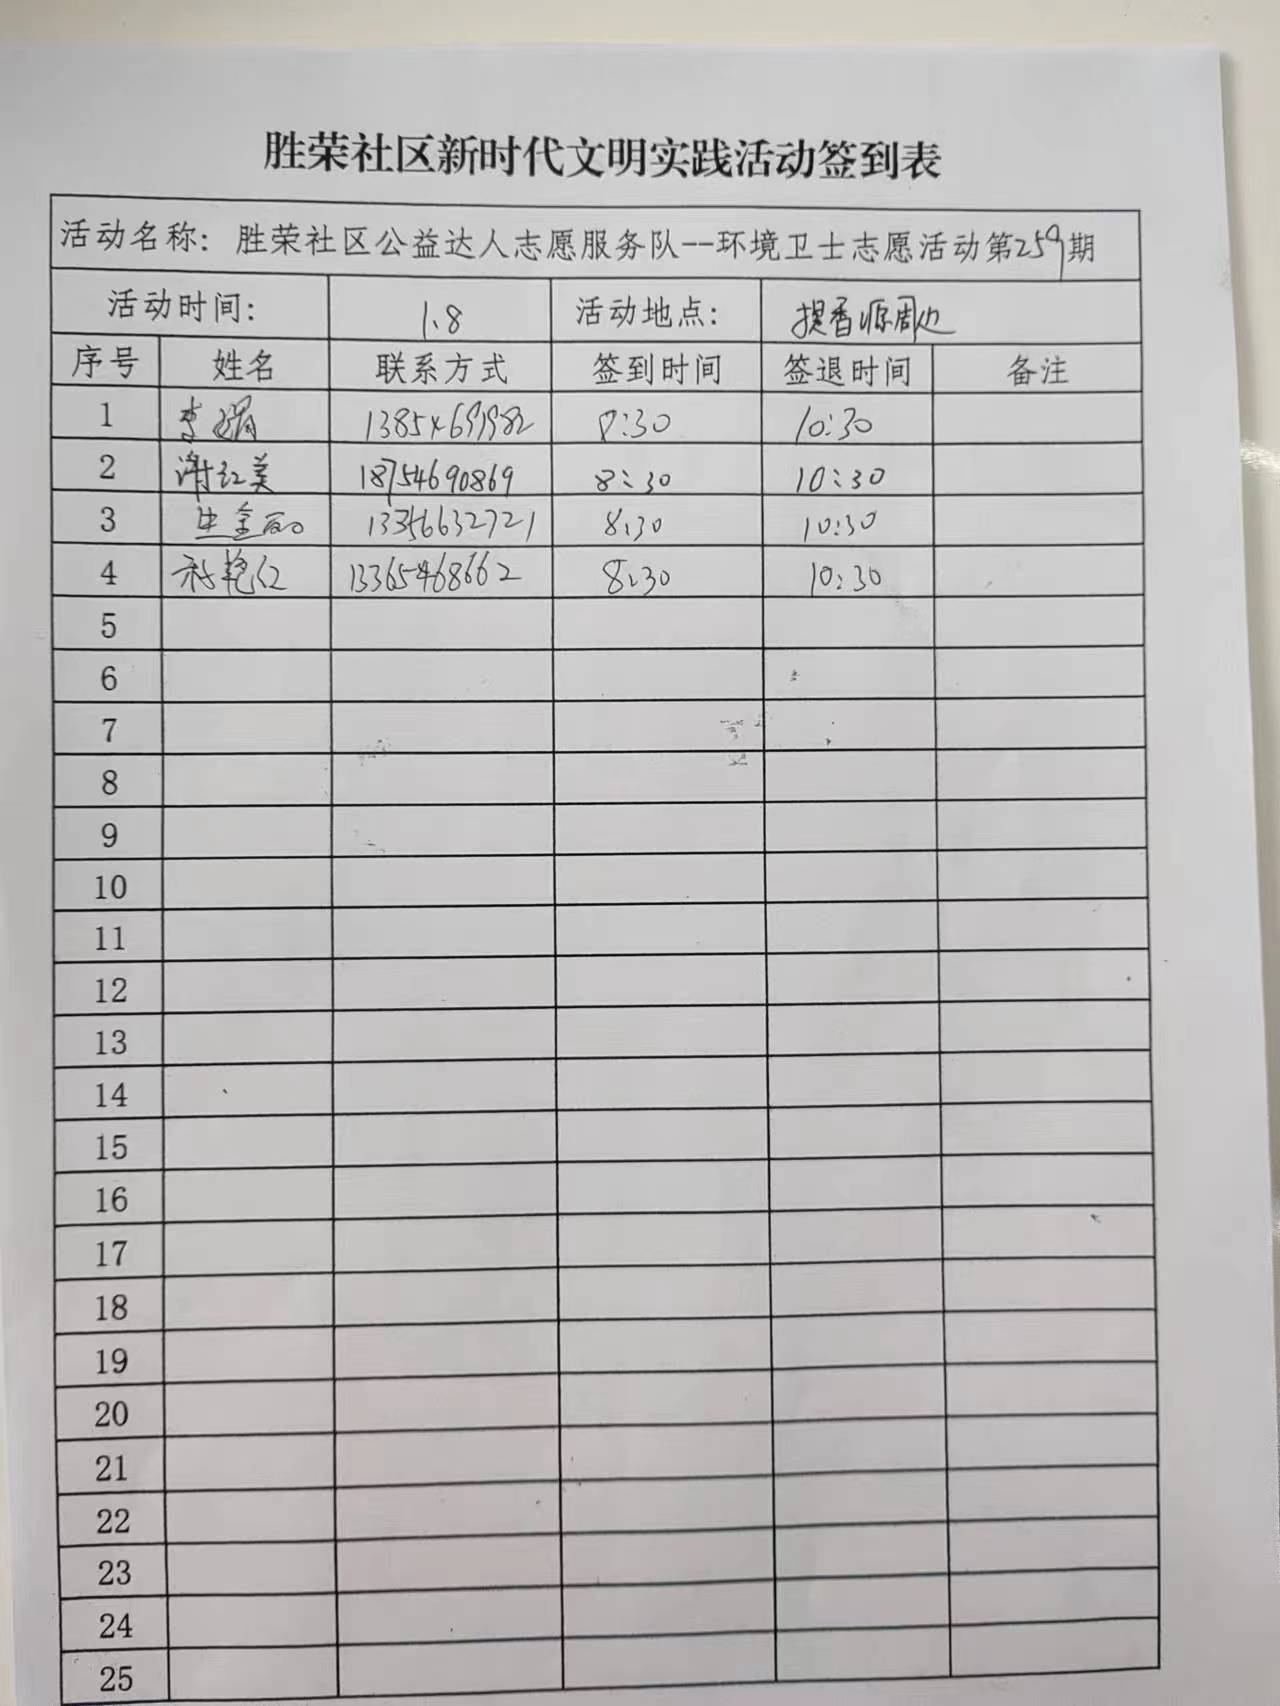 胜荣社区新时代文明实践活动签到表
活动名称：胜荣社区公益达人志愿服务队--环境卫士志愿活动第259期
活动时间： 1.8 活动地点： 提香源周边
序号 姓名 联系方式 签到时间 签退时间 备注
1 李 13854691982 8:30 10:30
2 谢红美 18754690869 8:30 10:30
3 13356632721 8:30 10:30
4 艳红 13365468662 8:30 10:30
5
6
7
8
9
10
11
12
13
14
15
16
17
18
19
20
21
22
23
24
25